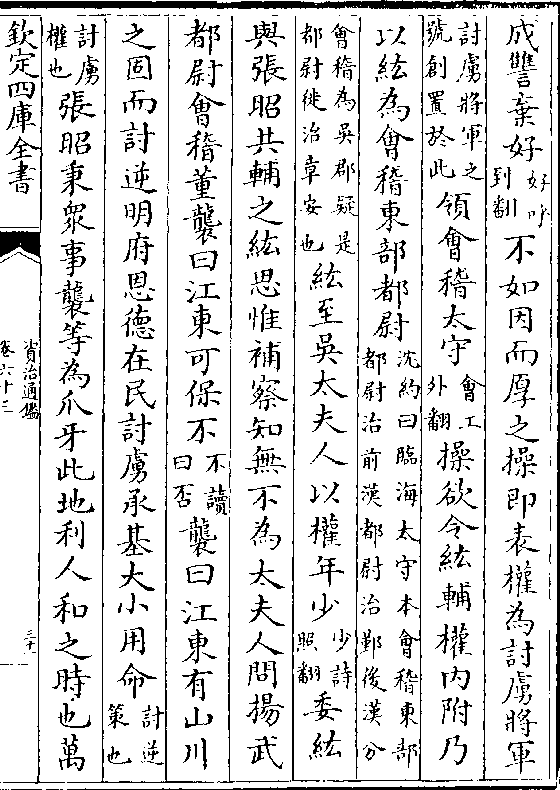 成讐棄好好呼到翻不如因而厚之操即表權為討虜將軍
討虜將軍之號創置於此領會稽太守會工外翻操欲令紘輔權內附乃
以紘為會稽東部都尉沈約曰臨海太守本會稽東部都尉治前漢都尉治鄞後漢分
會稽為吳郡疑是都尉徙治章安也紘至吳太夫人以權年少少詩照翻委紘
與張昭共輔之紘思惟補察知無不為太夫人問揚武
都尉會稽董襲曰江東可保不不讀曰否襲曰江東有山川
之固而討逆明府恩德在民討虜承基大小用命討逆策也
討虜權也張昭秉衆事襲等為爪牙此地利人和之時也萬
欽定四庫全書
資治通鑑
卷六十三
三十